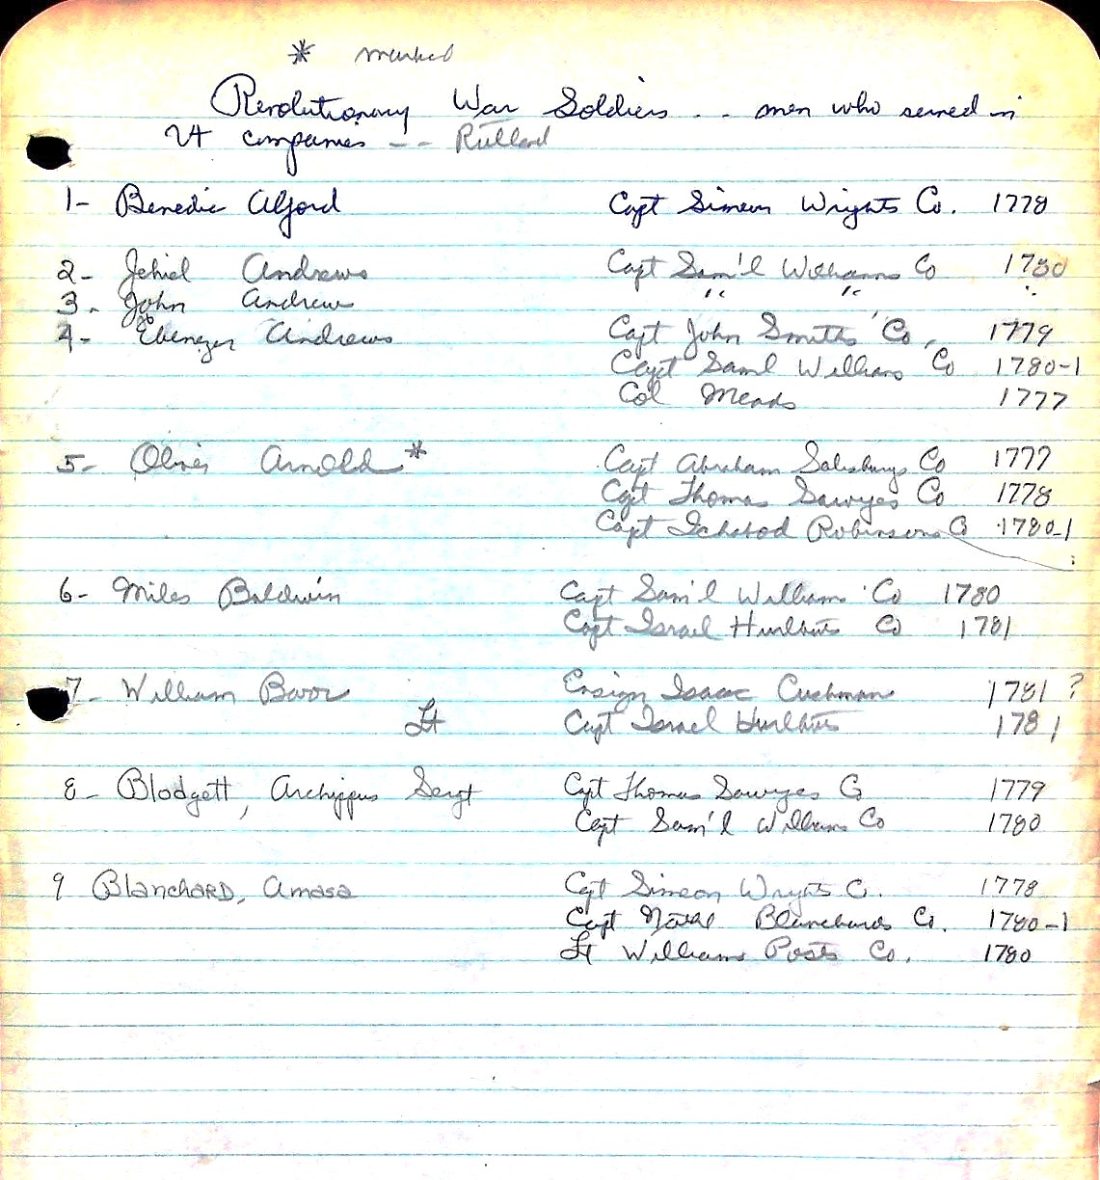 * marked
Revolutionary War Soldiers .. men who served in
Vt companies -- Rutland
1- Benedic Alford Capt Simeon Wrights Co. 1778
2- Jehiel Andrews Capt Sam'l Williams Co 1780
3. John Andrews " " "
4- Ebenezer Andrews Capt John Smiths Co, 1779
Capt Saml Williams Co 1780-1
Col Meads 1777
5- Oliver Arnold * Capt Abraham Salisburys Co 1777
Capt Thomas Sawyes Co 1778
Capt Ichabod Robinsons Co 1780-1
6- Miles Baldwin Capt Sam'l Williams Co 1780
Capt Israel Hurlbuts Co 1781
7- William Barr Ensign Isaac Cushman 1781 ?
Lt Capt Israel Hurlbuts 1781
8- Blodgett, Archippus Sergt Capt Thomas Sawyes Co 1779
Capt Sam'l Williams Co 1780
9 Blanchard, Amasa Capt Simeon Wrights C. 1778
Capt Nathl Blanchards Co. 1780-1
Lt Williams Posts Co. 1780